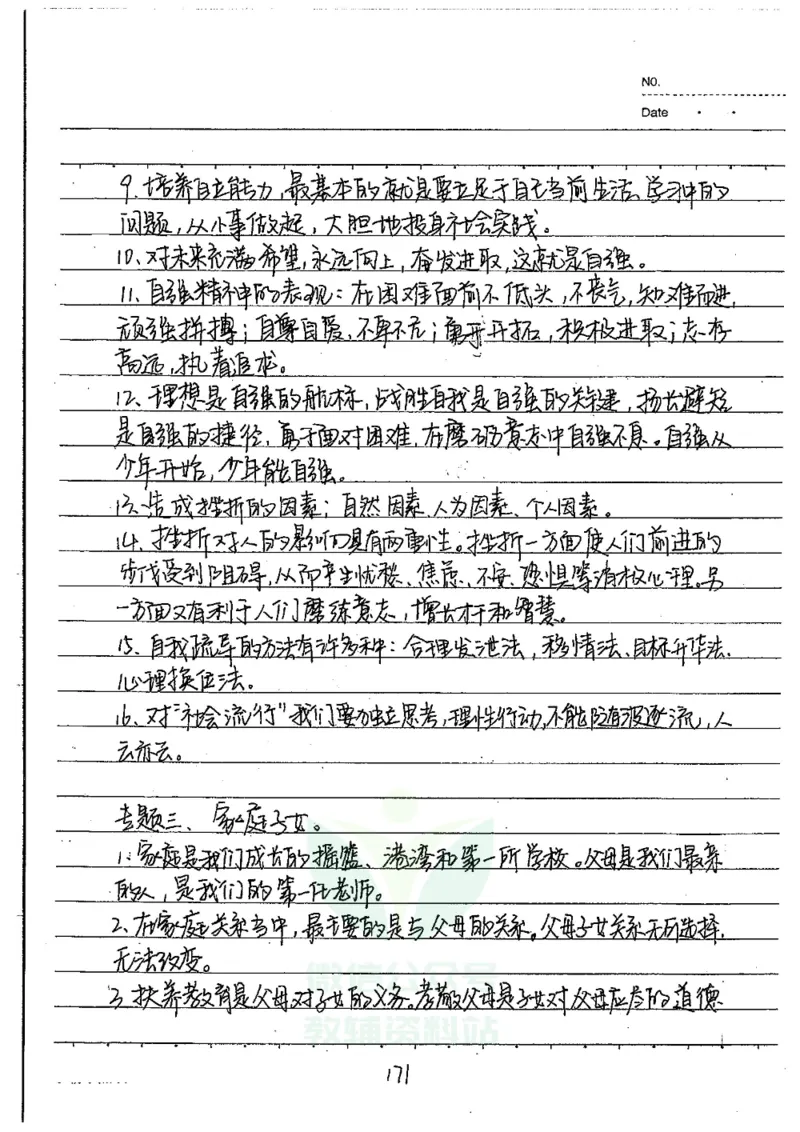 NO.
Date
9.培养自立能力,最基本的就是要立足于自己当前生活、学习中的
问题,从小事做起,大胆地投身社会实践。
10、对未来充满希望,永远向上,奋发进取,这就是自强。
11、自强精神的表现:在困难面前不低头,不丧气,知难而进,
顽强拼搏;自尊自爱,不卑不亢;勇于开拓,积极进取;志存
高远,执着追求。
12、理想是自强的航标,战胜自我是自强的关键,扬长避短
是自强的捷径,勇于面对困难,在磨砺意志中自强不息。自强从
少年开始,少年能自强。
13、造成挫折的因素;自然因素、人为因素、个人因素。
14、挫折对人的影响具有两重性。挫折一方面使人们前进的
步伐受到阻碍,从而产生忧愁、焦虑、不安、恐惧等消极心理。另
一方面又有利于人们磨练意志,增长才干和智慧。
15、自我疏导的方法有许多种:合理发泄法,移情法、目标升华法、
心理换位法。
16、对"社会流行"我们要独立思考,理性行动,不能随波逐流,人
云亦云。
专题三、家庭子女。
1、家庭是我们成长的摇篮、港湾和第一所学校。父母是我们最亲
的人,是我们的第一任老师。
2、在家庭关系当中,最主要的是与父母的关系。父母子女关系无可选择,
无法改变。
微信公众号
3、扶养教育是父母对子女的义务。孝敬父母是子女对父母应尽的道德
教辅资料站
171